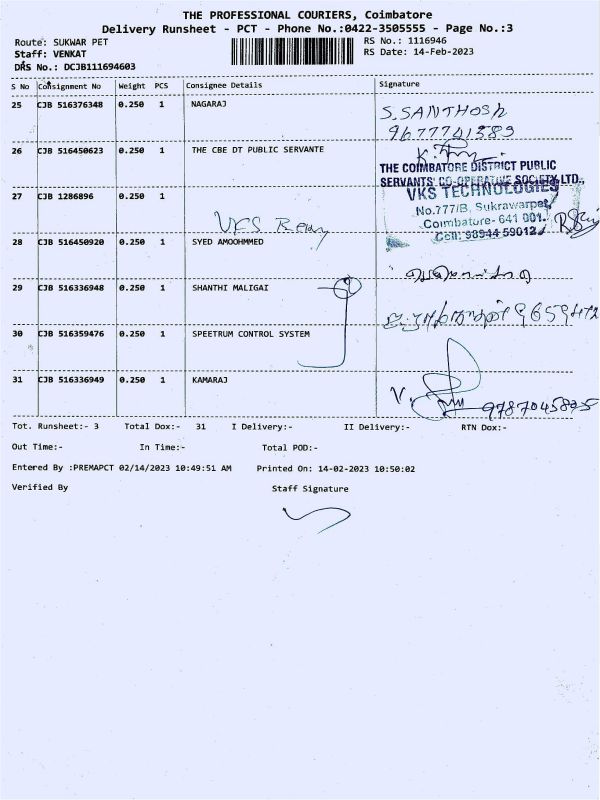 THE PROFESSIONAL COURIERS, Coimbatore
Delivery Runsheet - PCT - Phone No.:0422-3505555 - Page No.:3
Route: SUKWAR PET
RS No.: 1116946
Staff: VENKAT
RS Date: 14-Feb-2023
DRS No.: DCJB111694603
S No Consignment No Weight PCS Consignee Details Signature
25 CJB 516376348 0.250 1 NAGARAJ S. SANTHOSH
9677741389
26 CJB 516450623 0.250 1 THE CBE DT PUBLIC SERVANTE
THE COIMBATORE DISTRICT PUBLIC
SERVANTS CO-OPERATIVE SOCIETY LTD.,
27 CJB 1286896 0.250 1 VKS TECHNOLOGIES
No.777/B, Sukrawarpet,
VKS
Coimbatore- 641 001.
Cell: 98944 59012
28 CJB 516450920 0.250 1 SYED AMOOHMMED
29 CJB 516336948 0.250 1 SHANTHI MALIGAI
30 CJB 516359476 0.250 1 SPEETRUM CONTROL SYSTEM
31 CJB 516336949 0.250 1 KAMARAJ V.
Tot. Runsheet:- 3 Total Dox:- 31 I Delivery:- II Delivery:- RTN Dox:-
Out Time:- In Time:- Total POD:-
Entered By :PREMAPCT 02/14/2023 10:49:51 AM Printed On: 14-02-2023 10:50:02
Verified By Staff Signature